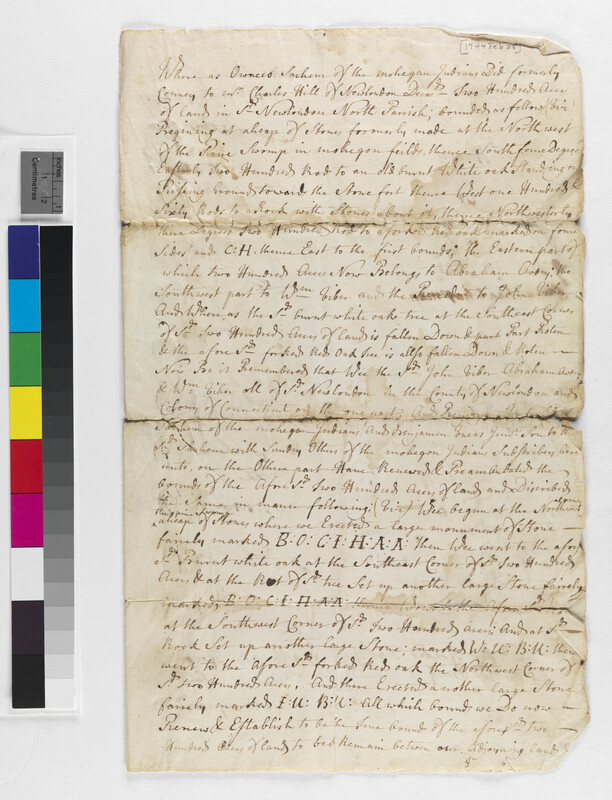 [1744 Feb 28]
Where as Oweneco Sachem of the mohegan Indians Did formerly
Convey to mr Charles Hill of Newlondon Decd Two Hundred Acres
of land in Sd Newlondon North Parrish; bounded as follows (Viz)
Begining at a heap of Stones formerly made at the Northwest
of the Pine Swamp in mohegan feilds, thence South four Degrees
Easterly two Hundred Rod to an old burnt White oak Standing on
Rising Ground toward the Stone fort thence West one Hundred &
Sixty Rods to a Rock with Stones about it, thence Northwesterly
three Degrees Two Hundred Rod to a forked Red oak marked on four
Sides and C:H. thence East to the first bounds; The Eastern part of
which two Hundred Acres Now Belongs to Abraham Avery; the
Southwest part to Wm Viber and the Remainder to John Viber
And Where as the Sd burnt white oak tree at the Southeast Corner
of Sd two Hundred Acres of land is fallen Down & part Rotten
& the afore Sd forked Red Oak tree is allso fallen Down & Roten
Now Be it Remembered that Wee the Sd John Viber Abraham Avery
& Wm Viber All of Sd Newlondon in the County of Newlondon and
Colony of Connecticut on the one part; And Benjamin
Sachem of the mohegan Indians And Benjamin Uncas Junr Son to the
Sd Sachem with Sundry Others of the mohegan Indians Subscribers
unto, on the Other part Have Renewed & Preambulated the
bounds of the Afore Sd two Hundred Acres of land and Discribed
the Same in maner following; (Viz) Wee begun at the Northwest
the pine Swamp
a heap of Stones where we Erected a large monument of Stone
fairely marked B·O·C·I·H·A·A· Then Wee went to the afore
Sd Burnt white oak at the Southeast Corner of Sd two Hundred
Acres & at the Root of Sd tree Set up another large Stone fairely
marked B·O·C·I·H·A·A· thence
at the Southwest Corner of Sd two Hundred Acres; And at Sd
Rock Set up another large Stone; marked W:U: B:U: then
went to the Afore Sd forked Red oak the Northwest Corner of
Sd two Hundred Acres, And there Erected another large Stone
fairely marked I:U: B:U: All which bounds we Do now
Renew & Establish to be the true bound of the afore Sd two
Hundred Acres of land to be & Remain between our adjoyning lands